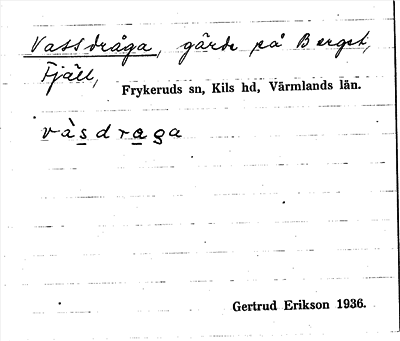 Vassdråga, gärde på Berget,
Fjäll,
Frykeruds sn, Kils hd, Värmlands län.
vàsdraga
Gertrud Erikson 1936.